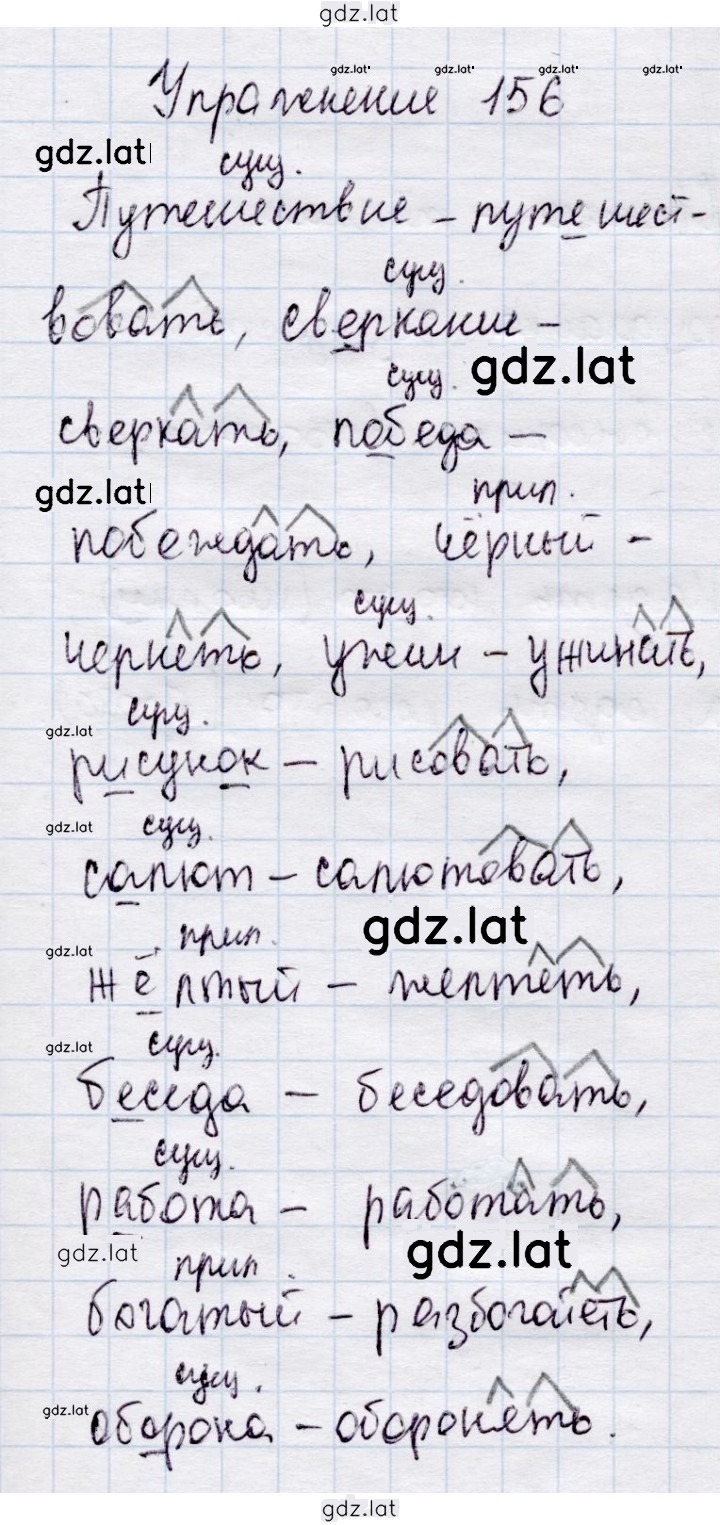 gdz.lat
gdz.lat' gdz.lat' gdz.lat' gdz.lat'
Упражнение 156
gdz.lat сущ.
Путешествие – путешест-
сущ.
вовать, сверкание –
сущ. gdz.lat
сверкать, победа –
gdz.lat прил.
побеждать, чёрный –
сущ.
чернеть, ужин – ужинать,
gdz.lat сущ.
рисунок – рисовать,
gdz.lat сущ.
салют – салютовать,
прил. gdz.lat
gdz.lat
жёлтый – желтеть,
gdz.lat сущ.
беседа – беседовать,
сущ.
работа – работать,
gdz.lat прил. gdz.lat
богатый – разбогатеть,
сущ.
gdz.lat
оборона – оборонять.
gdz.lat